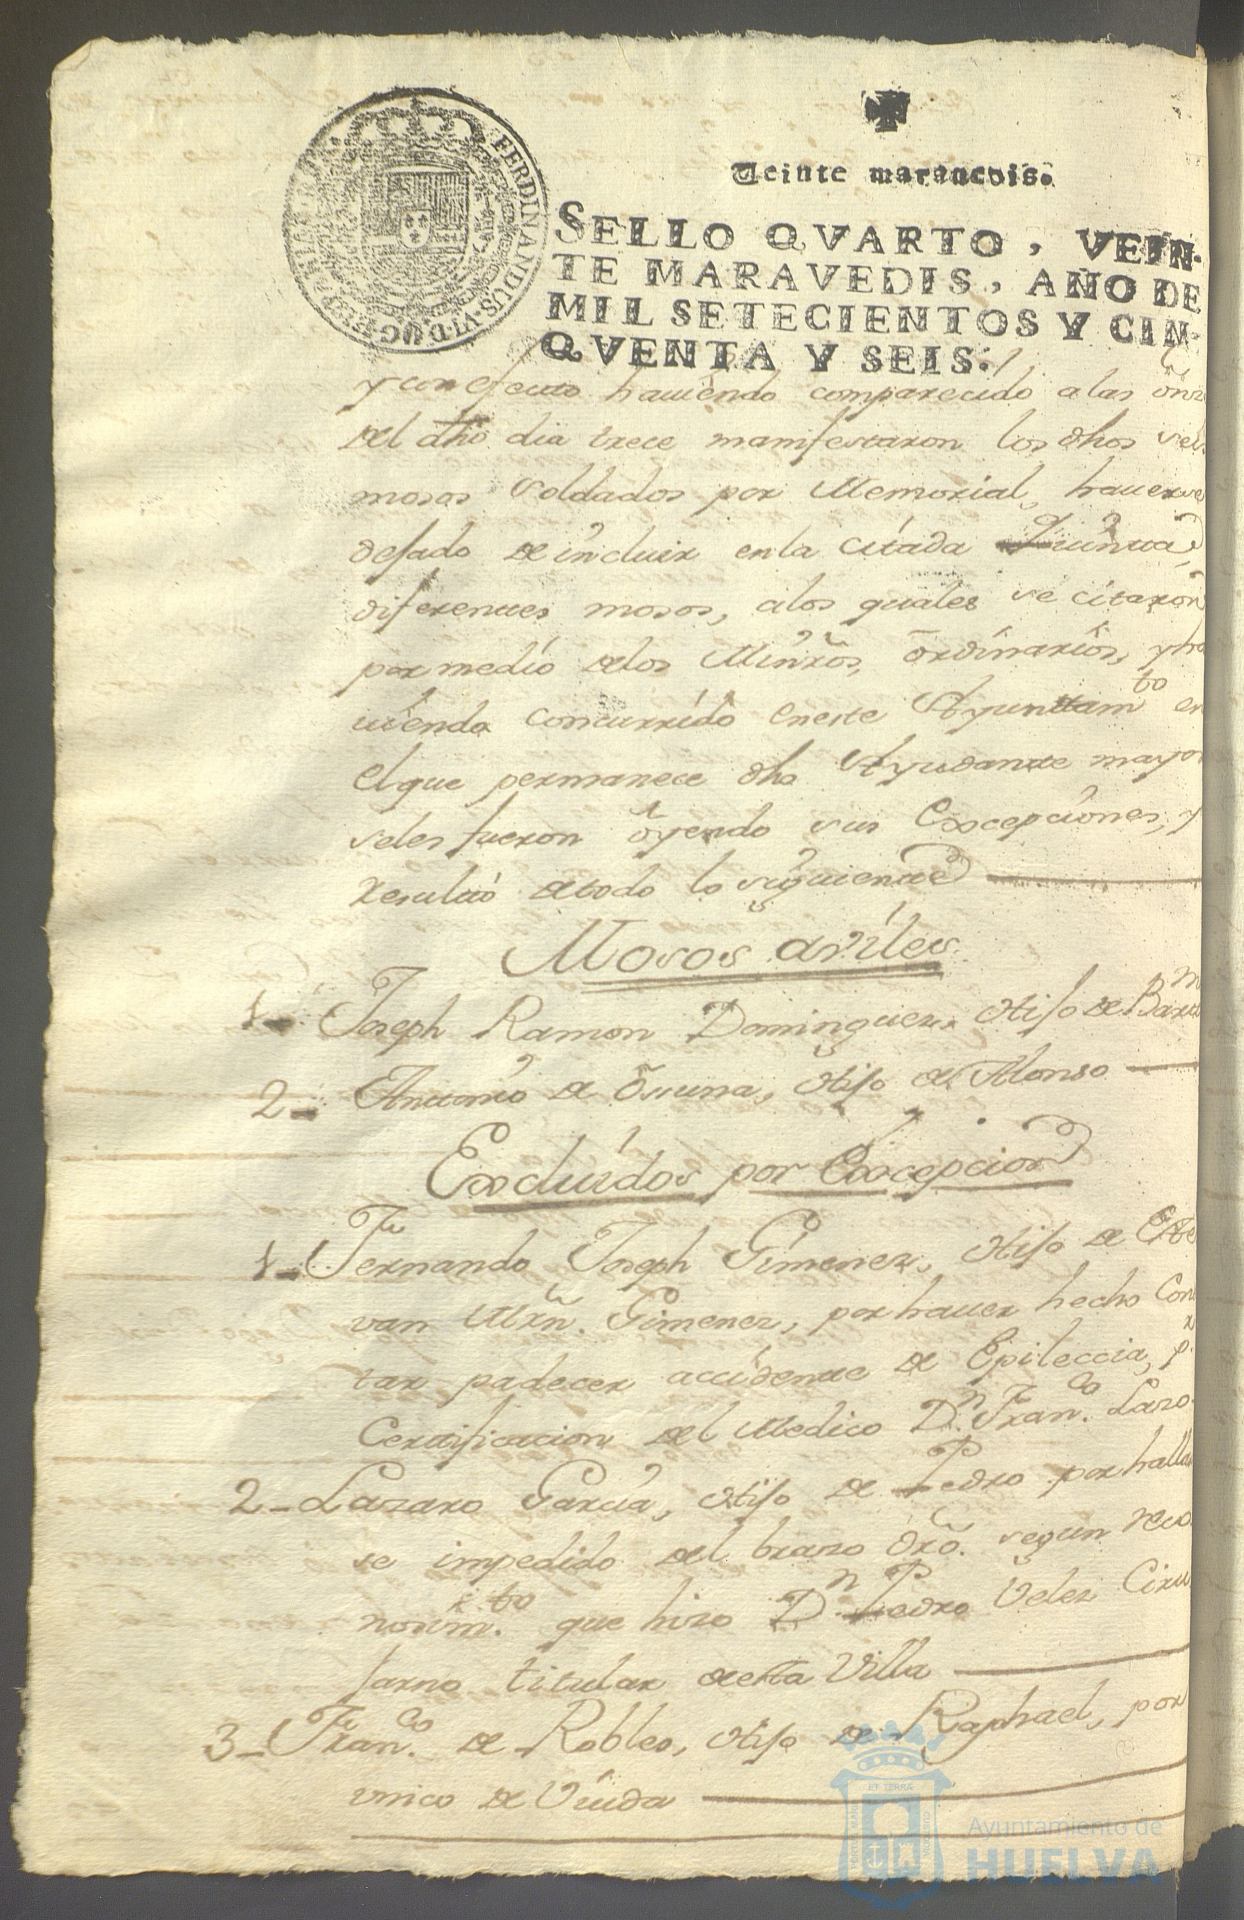 Veinte maravedis.
SELLO QVARTO, VEIN-
TE MARAVEDIS, AÑO DE
MIL SETECIENTOS Y CIN-
QVENTA Y SEIS.
FERDINANDUS·VI·D·G·
y con efecto haviendo comparecido a las
del dho dia trece manifestaron los dhos
mosos Soldados por Memorial, haverse
dejado de incluir en la citada Quinta
diferentes mosos, a los quales se citaron
por medio de los Minrõs, ordinarios, y ha
viendo concurrido en este Ayunttamto en
el que permanece dho Ayudante mayor
se les fueron oyendo sus Excepciones, y
Resultó de todo lo siguiente
Mosos aviles
1 Joseph Ramon Dominguez, Hijo de
2 Antonio de Ossuna, Hijo de Alonso
Excluidos por Excepcion
1 Fernando Joseph Gimenez, Hijo de Este
van Mrn. Gimenez, por haver hecho Cons
tar padecer accidente de Epileccia, pr.
Certificacion del Medico Dn. Franco. Lazo
2 Lazaro Garcia, Hijo de Pedro por halla
se impedido del brazo dro. segun reco
nosim.to que hizo Dn Pedro Velez Ciru
jano titular de esta Villa
3 Franco. de Robles, Hijo de Raphael, por
unico de Viuda
ET TERRÆ
Ayuntamiento de
HUELVA